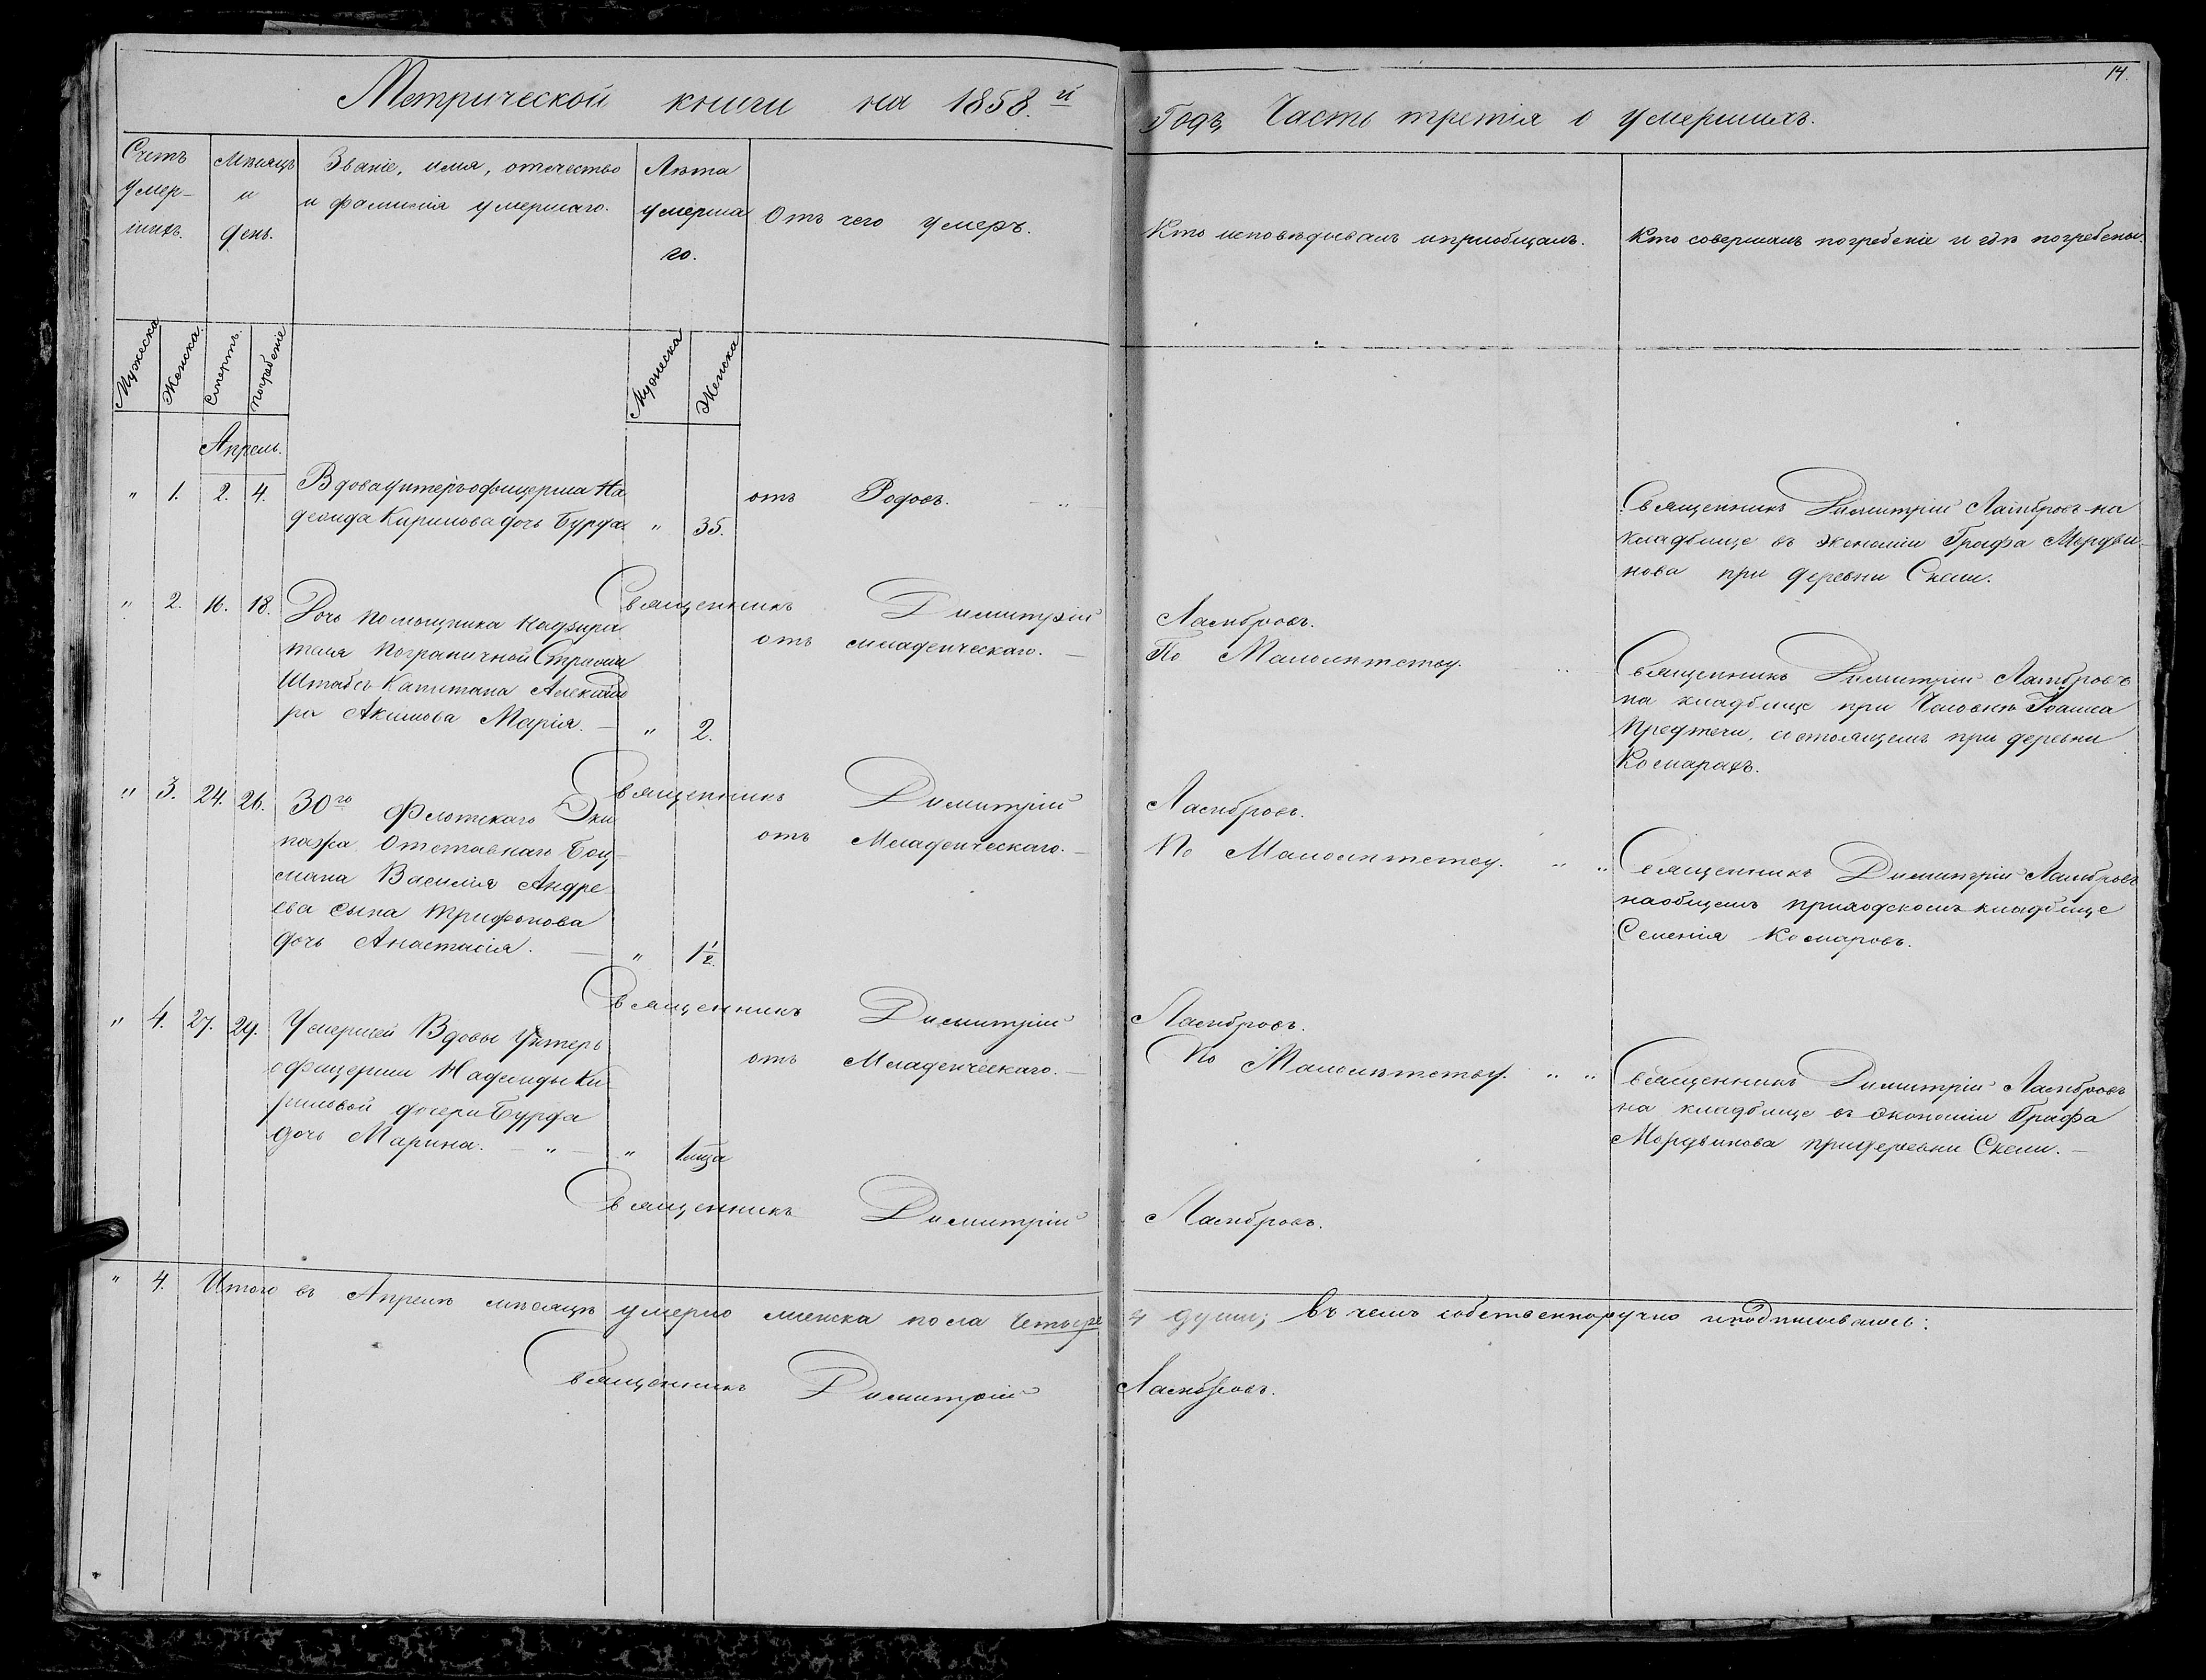 14.
Метрической книги на 1858.й Годъ, Часть третія о умершихъ.
Счетъ умер-шихъ.
Мѣсяцъ и день.
Званіе, имя, отчество
и фамилія умершаго.
Лѣта умерша го.
Отъ чего умеръ.
Кто исповѣдывалъ и пріобщалъ.
Кто совершалъ погребеніе и гдѣ погребены.
Мужеска
Женска.
Смерть.
погребеніе
Мужеска
Женска
Апрель.
" 1. 2. 4.
Вдова унтеръ офицерша На
дежда Кирилова дочь Бурфа
" 35.
отъ Родовъ.
Священникъ Димитрій Ламбровъ на
кладбище въ экономіи Графа Мордви-
нова при деревни Скели.
Священникъ Димитрій Ламбровъ.
" 2. 16. 18.
Дочь помощника Надзира
теля пограничной Стражи
Штабсъ Капитана Александ
ра Акимова Марія.
" 2.
отъ младенческаго.
По Малолѣтству.
Священникъ Димитрій Ламбровъ
на кладбище при Часовнѣ Іоанна
Предтечи, состоящемъ при деревни
Комарахъ.
Священникъ Димитрій Ламбровъ.
" 3. 24. 26.
30го Флотскаго Эки
пажа Отставнаго Боц-
мана Василія Андре-
ева сына Трифонова
дочь Анастасія.
" 1 1/2.
отъ Младенческаго.
По Малолѣтству.
Священникъ Димитрій Ламбровъ
на общемъ приходскомъ кладбище
Селенія Комаровъ.
Священникъ Димитрій Ламбровъ.
" 4. 27. 29.
Умершей Вдовы Унтеръ
офицерши Надежды Ки
риловой дочери Бурфа
дочь Марина. "
"
отъ Младенческаго.
По Малолѣтству.
Священникъ Димитрій Ламбровъ
на кладбище въ экономіи Графа
Мордвинова при деревни Скели.
Священникъ Димитрій Ламбровъ.
" 4. Итого въ Апрелѣ мѣсяцѣ умерло женска пола Четыре 4 души; въ чемъ собственноручно и подписываюсь:
Священникъ Димитрій Ламбровъ.